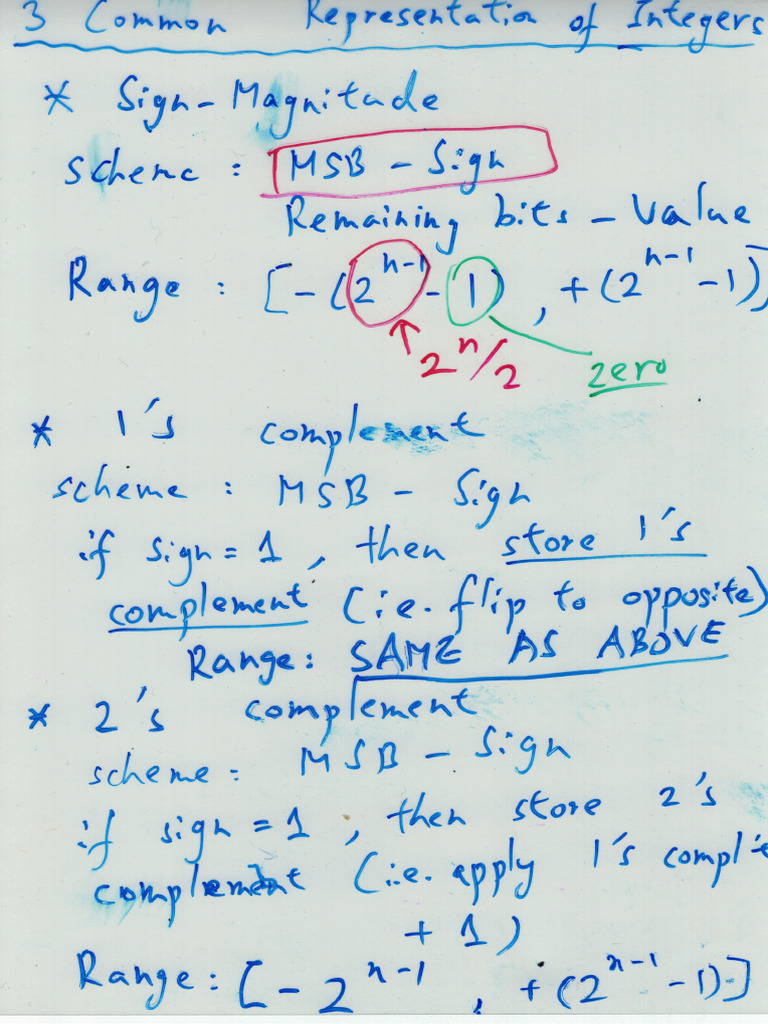 3 Common Representation of Integers
* Sign-Magnitude
scheme : MSB - Sign
Remaining bits - Value
Range : [-(2^{n-1} - 1) , +(2^{n-1} - 1)]
2^n/2
zero
* 1's complement
scheme : MSB - Sign
if sign = 1 , then store 1's
complement (i.e. flip to opposite)
Range: SAME AS ABOVE
* 2's complement
scheme: MSB - Sign
if sign = 1 , then store 2's
complement (i.e. apply 1's comple
+ 1)
Range: [-2^{n-1} , +(2^{n-1} - 1)]